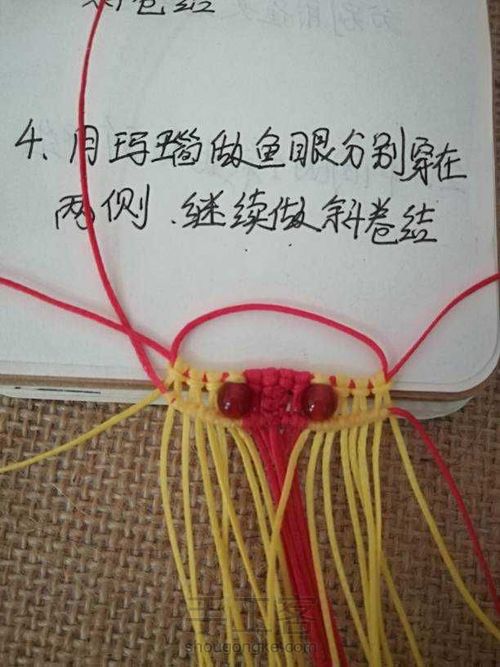 卷结
4、用玛瑙做鱼眼分别穿在
两侧、继续做斜卷结
手工客
shougongke.com